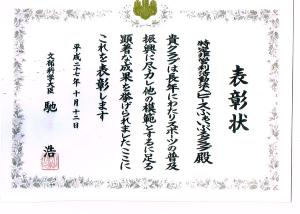 表彰状
特定非営利活動法人ピースふぁいぶるクラブ殿
貴クラブは長年にわたりスポーツの普及
振興に尽力し他の模範とするに足る
顕著な成果を挙げられましたここに
これを表彰します
平成二十七年十月十二日
文部科学大臣 馳 浩